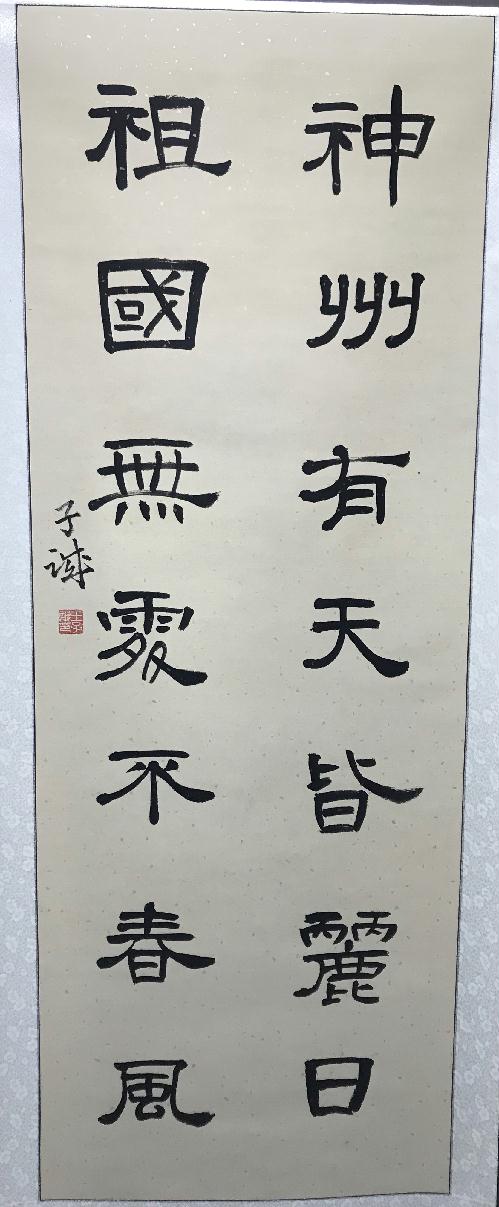 神州有天皆麗日
祖國無處不春風
子誠